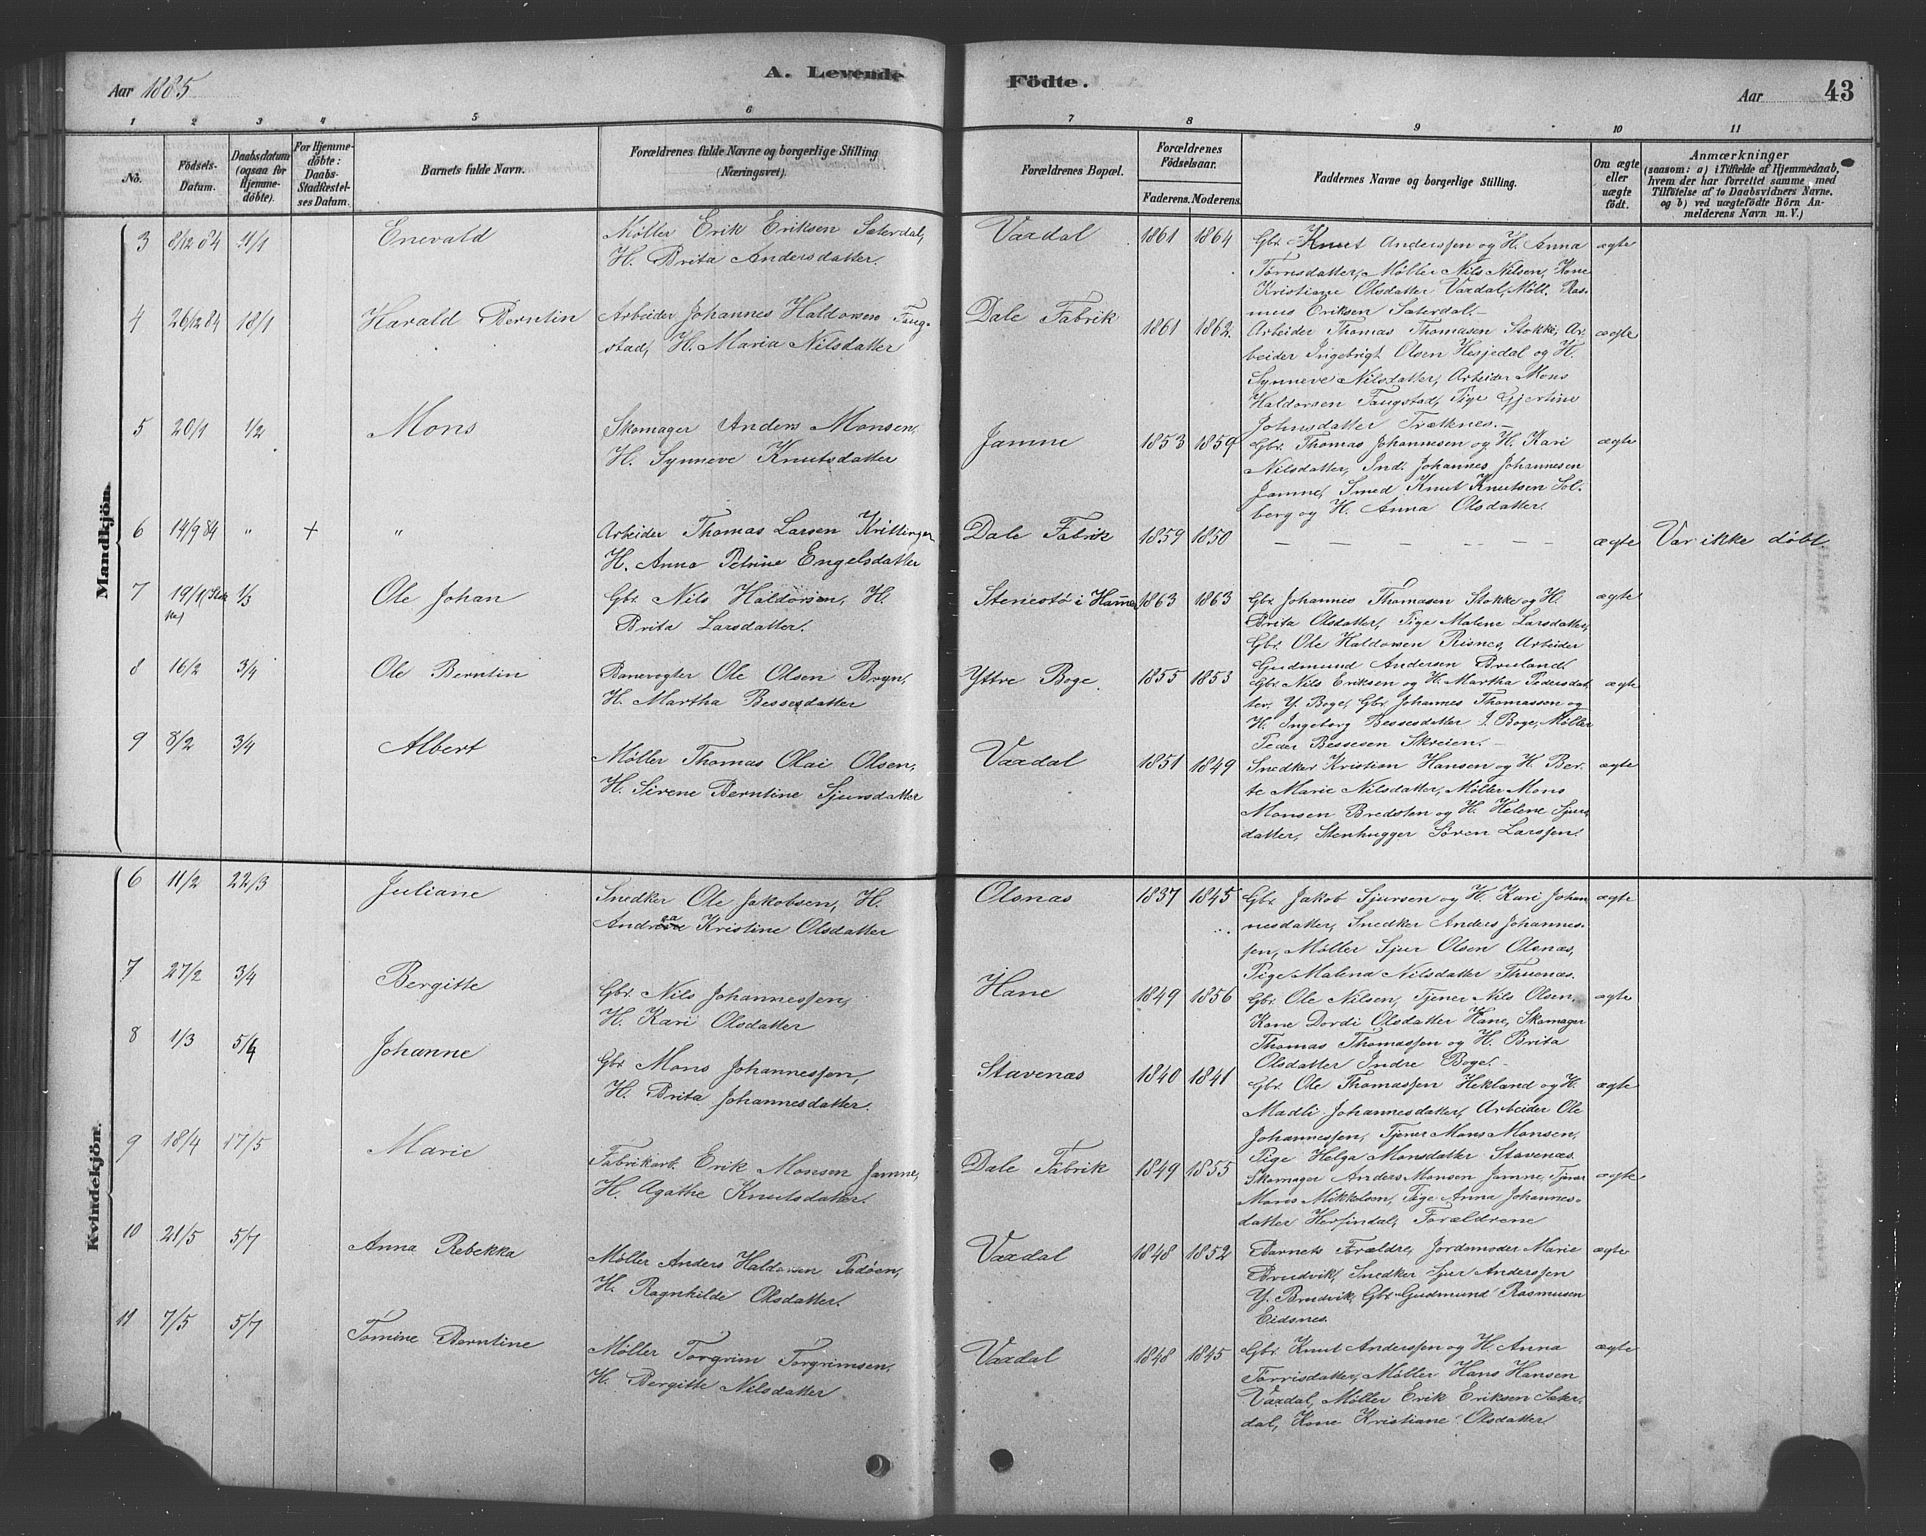 Aar 1885
A. Levende Födte.
Aar 43
1 2 3 4 5 6 7 8 9 10 11
No.
Födsels-Datum.
Daabsdatum (ogsaa for Hjemmedöbte).
For Hjemmedöbte: Daabs-Stadfæstelses Datum.
Barnets fulde Navn.
Forældrenes fulde Navne og borgerlige Stilling (Næringsvei).
Forældrenes Bopæl.
Forældrenes Födselsaar.
Faderens. Moderens.
Faddernes Navne og borgerlige Stilling.
Om ægte eller uægte födt.
Anmærkninger
(saasom: a) i Tilfælde af Hjemmedaab, hvem der har forrettet samme med Tilföielse af to Daabsvidners Navne, og b) ved uægtefödte Börn Anmelderens Navn m. V.)
Mandkjön.
3 8/12 84 11/1 Enevald
Møller Erik Eriksen Sæterdal,
H. Brita Andersdatter.
Vaxdal 1861 1864
Gbr. Knut Anderssen og H. Anna
Tørrisdatter, Møller Nils Nilsen, Kone
Kristiane Olsdatter Vaxdal, Møll. Ras-
mus Eriksen Sæterdal.
ægte
4 26/12 84 18/1 Harald Berntin
Arbeider Johannes Haldorsen Faug-
stad, H. Maria Nilsdatter
Dale Fabrik 1861 1862.
Arbeider Thomas Thomasen Stokke, Ar-
beider Ingebrigt Olsen Hesjedal og H.
Synneve Nilsdatter, Arbeider Mons
Haldorsen Faugstad, Pige Gjertine
Johnsdatter Trætnes.
ægte
5 20/1 1/2 Mons
Skomager Anders Monsen,
H. Synneve Knutsdatter
Jamne 1853 1859
Gbr. Thomas Johannesen og H. Kari
Nilsdatter, Ind. Johannes Johannesen
Jamne, Smed Knut Knutsen Sol-
berg og H. Anna Olsdatter.
ægte
6 14/9 84 " + "
Arbeider Thomas Larsen
H. Anna Petrine Engelsdatter
Dale Fabrik 1859 1850
— — — — —
ægte Var ikke døbt.
7 19/1 1/3 Ole Johan
Gbr. Nils Haldorsen, H.
Brita Larsdatter.
Stenestø i Hamre 1863 1863
Gbr. Johannes Thomasen Stokke og H.
Brita Olsdatter, Pige Malene Larsdatter,
Gbr. Ole Haldorsen Risnes, Arbeider
Gudmund Andersen Bruland.
ægte
8 16/2 3/4 Ole Berntin
Banevogter Ole Olsen Bryn,
H. Martha Bessesdatter
Yttre Boge. 1855 1853
Gbr. Nils Eriksen og H. Martha Pedersdat-
ter, Y. Boge, Gbr. Johannes Thomasson og
H. Ingeborg Bessesdatter I. Boge, Møller
Peder Bessesen Skreien.
ægte
9 8/2 3/4 Albert
Møller Thomas Olai Olsen,
H. Sirene Berntine Sjursdatter
Vaxdal 1851 1849
Snedker Kristian Hansen og H. Ber-
te Marie Nilsdatter, Møller Mons
Monsen Bredsten og H. Helene Sjurs-
datter, Stenhugger Søren Larssen.
ægte
Kvindekjön.
6 11/2 22/3 Juliane
Snedker Ole Jakobsen, H.
Andrea Kristine Olsdatter
Olsnas 1837 1845
Gbr. Jakob Sjursen og H. Kari Johan-
nesdatter, Snedker Anders Johannes-
sen, Møller Sjur Olsen Olsnas,
Pige Malena Nilsdatter Thuenas.
ægte
7 27/2 3/4 Bergitte
Gbr. Nils Johannessen,
H. Kari Olsdatter
Hane 1849 1856
Gbr. Ole Nilsen, Tjener Nils Olsen,
Kone Dordi Olsdatter Hane, Skomager
Thomas Thomassen og H. Brita
Olsdatter Indre Boge.
ægte
8 1/3 5/4 Johanne
Gbr. Mons Johannessen,
H. Brita Johannesdatter.
Stavenas 1840 1841
Gbr. Ole Thomassen Hekland og H.
Madli Johannesdatter, Arbeider Ole
Johannessen, Tjener Mons Monsen,
Pige Helga Monsdatter Stavenas.
ægte
9 18/4 17/5 Marie
Fabrikarb. Erik Monsen Jamne,
H. Agathe Knutsdatter.
Dale Fabrik 1849 1855
Skomager Anders Monsen Jamne, Tjener
Mons Mikkelsen, Pige Anna Johannes-
datter Herfindal, Forældrene
ægte
10 21/5 5/7 Anna Rebekka
Møller Anders Haldorsen Tadøen,
H. Ragnhilde Olsdatter.
Vaxdal 1848 1852
Barnets Forældre, Jordemoder Marie
Brudvik, Snedker Sjur Anderssen
Y. Brudvik, Gbr. Gudmund Rasmusen
Eidsnes.
ægte
11 7/5 5/7 Tomine Berntine
Møller Torgrim Torgrimsen,
H. Bergitte Nilsdatter
Vaxdal 1848 1845
Gbr. Knut Anderssen og H. Anna
Tørrisdatter, Møller Hans Hansen
Vaxdal, Møller Erik Eriksen Sæter-
dal, Kone Kristiane Olsdatter
ægte